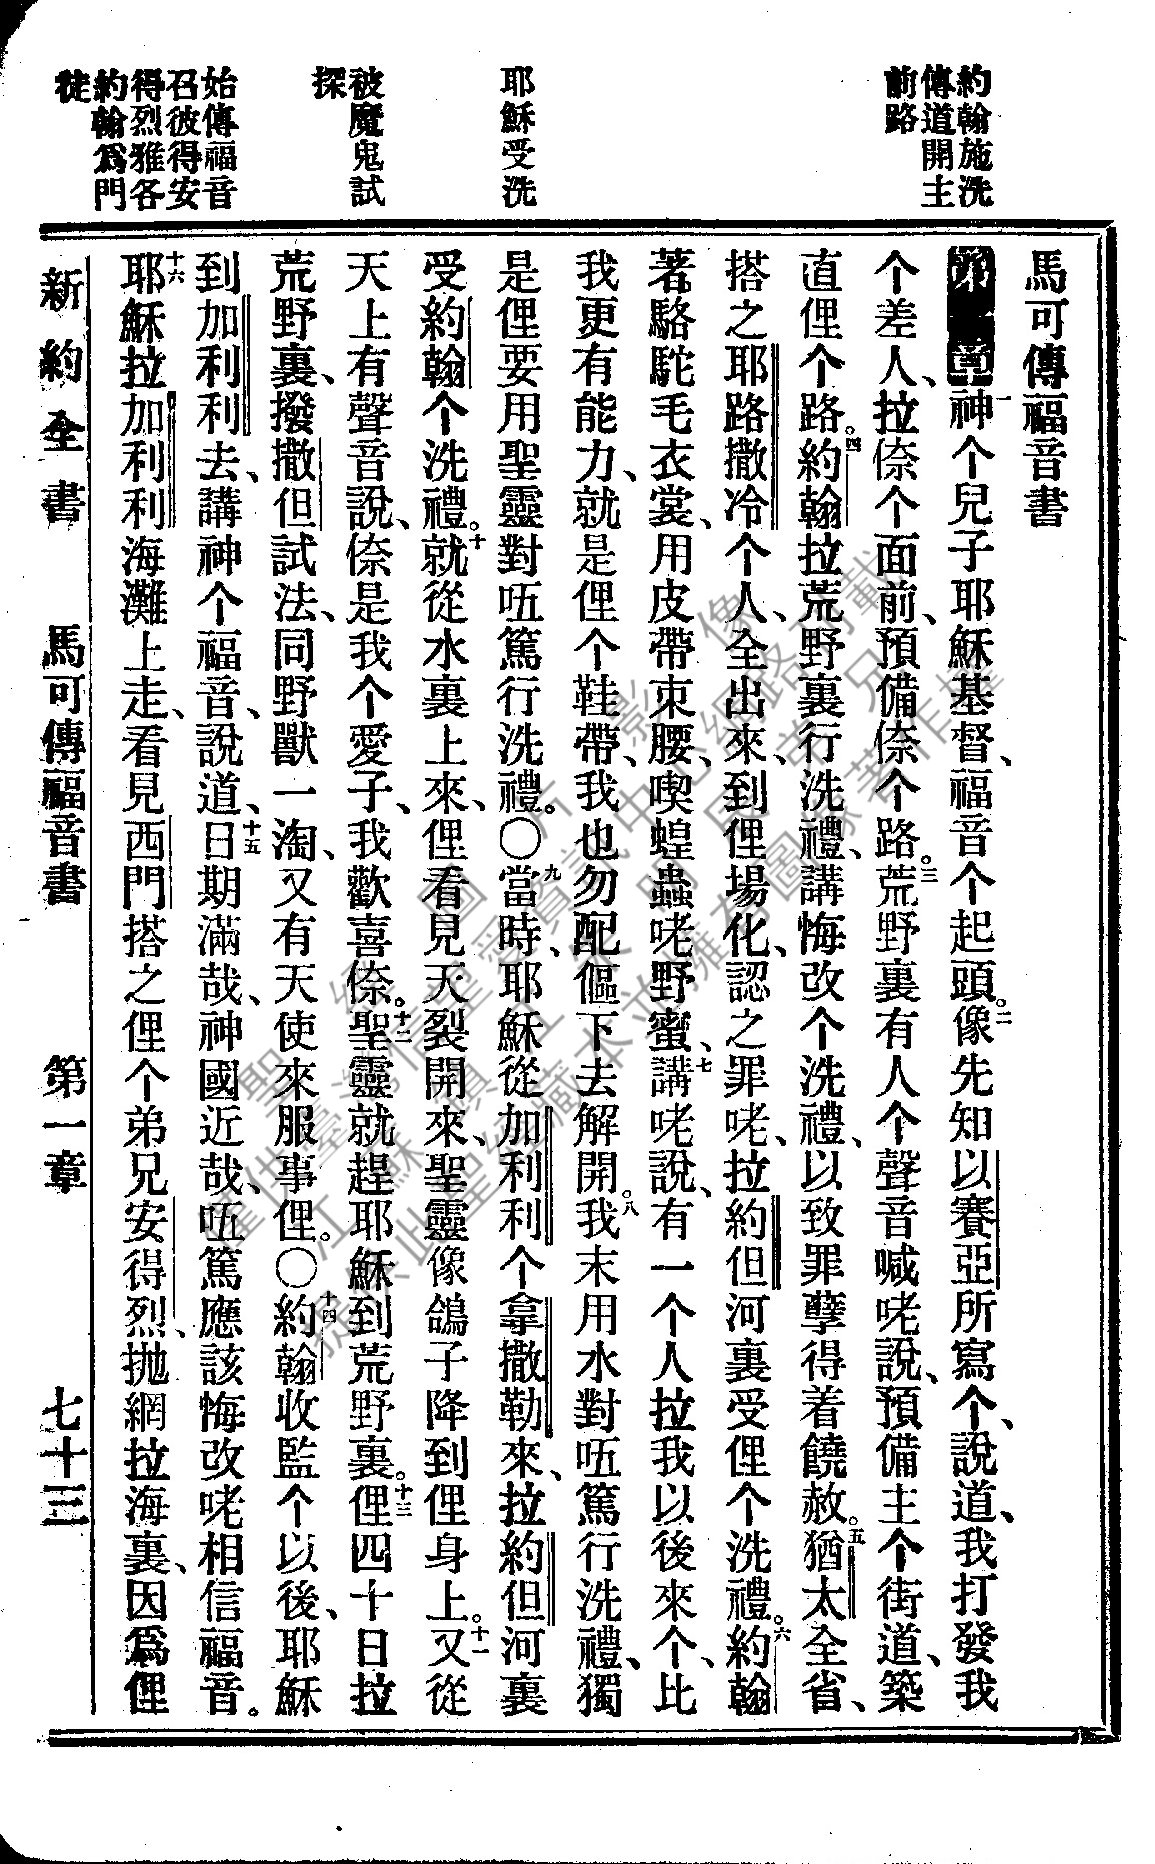 約翰施洗
傳道開主
前路
耶穌受洗
被魔鬼試
探
始傳福音
召彼得安
得烈雅各
約翰爲門
徒
馬可傳福音書
第一章一神个兒子耶穌基督、福音个起頭。二像先知以賽亞所寫个、說道、我打發我
个差人、拉倷个面前、預備倷个路。三荒野裏有人个聲音喊咾說、預備主个街道、築
直俚个路。四約翰拉荒野裏行洗禮、講悔改个洗禮、以致罪孽得着饒赦。五猶太全省、
搭之耶路撒冷个人、全出來、到俚場化、認之罪咾、拉約但河裏受俚个洗禮。六約翰
著駱駝毛衣裳、用皮帶束腰、喫蝗蟲咾野蜜、七講咾說、有一个人拉我以後來个、比
我更有能力、就是俚个鞋帶、我也勿配傴下去解開。八我末用水對㕶篤行洗禮、獨
是俚要用聖靈對㕶篤行洗禮。〇九當時、耶穌從加利利个拿撒勒來、拉約但河裏
受約翰个洗禮。十就從水裏上來、俚看見天裂開來、聖靈像鴿子降到俚身上。十一又從
天上有聲音說、倷是我个愛子、我歡喜倷。十二聖靈就趕耶穌到荒野裏。十三俚四十日拉
荒野裏、撥撒但試法、同野獸一淘、又有天使來服事俚。〇十四約翰收監个以後、耶穌
到加利利去、講神个福音、說道、十五日期滿哉、神國近哉、㕶篤應該悔改咾相信福音。
十六耶穌拉加利利海灘上走、看見西門搭之俚个弟兄安得烈、拋網拉海裏、因爲俚
新約全書 馬可傳福音書 第一章 七十三